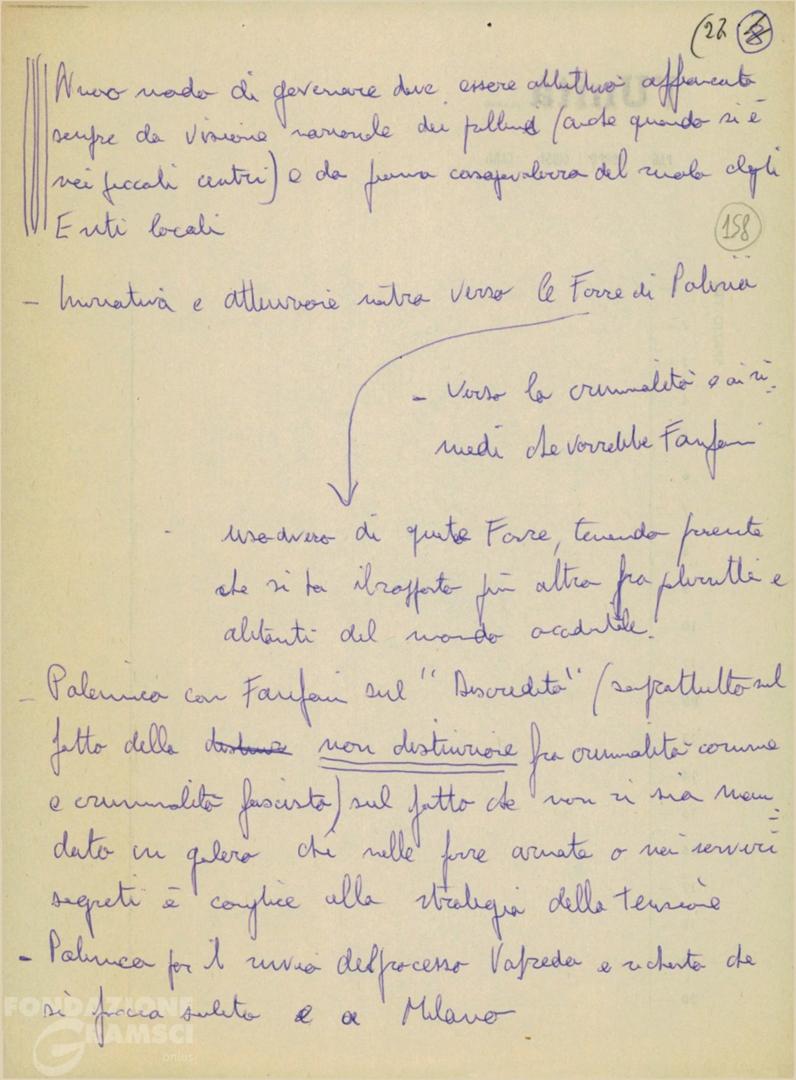 (22 8
Nuovo modo di governare deve essere addirittura affiancato
sempre da visione nazionale dei problemi (anche quando si è
nei piccoli centri) e da piena consapevolezza del ruolo degli
Enti locali
158
- Iniziativa e attenzione nostra verso le Forze di Polizia
- Verso la criminalità e ai ri-
medi che vorrebbe Fanfani
- uso diverso di queste Forze, tenendo presente
che si ha il rapporto più alto fra poliziotti e
abitanti del mondo occidentale.
- Polemica con Fanfani sul "Discredito" (soprattutto sul
fatto della non distinzione fra criminalità comune
e criminalità fascista) sul fatto che non si sia man=
dato in galera chi nelle forze armate o nei servizi
segreti è complice alla strategia della tensione
- Polemica per il rinvio del processo Valpreda e richiesta che
si faccia subito e a Milano
FONDAZIONE
GRAMSCI
onlus